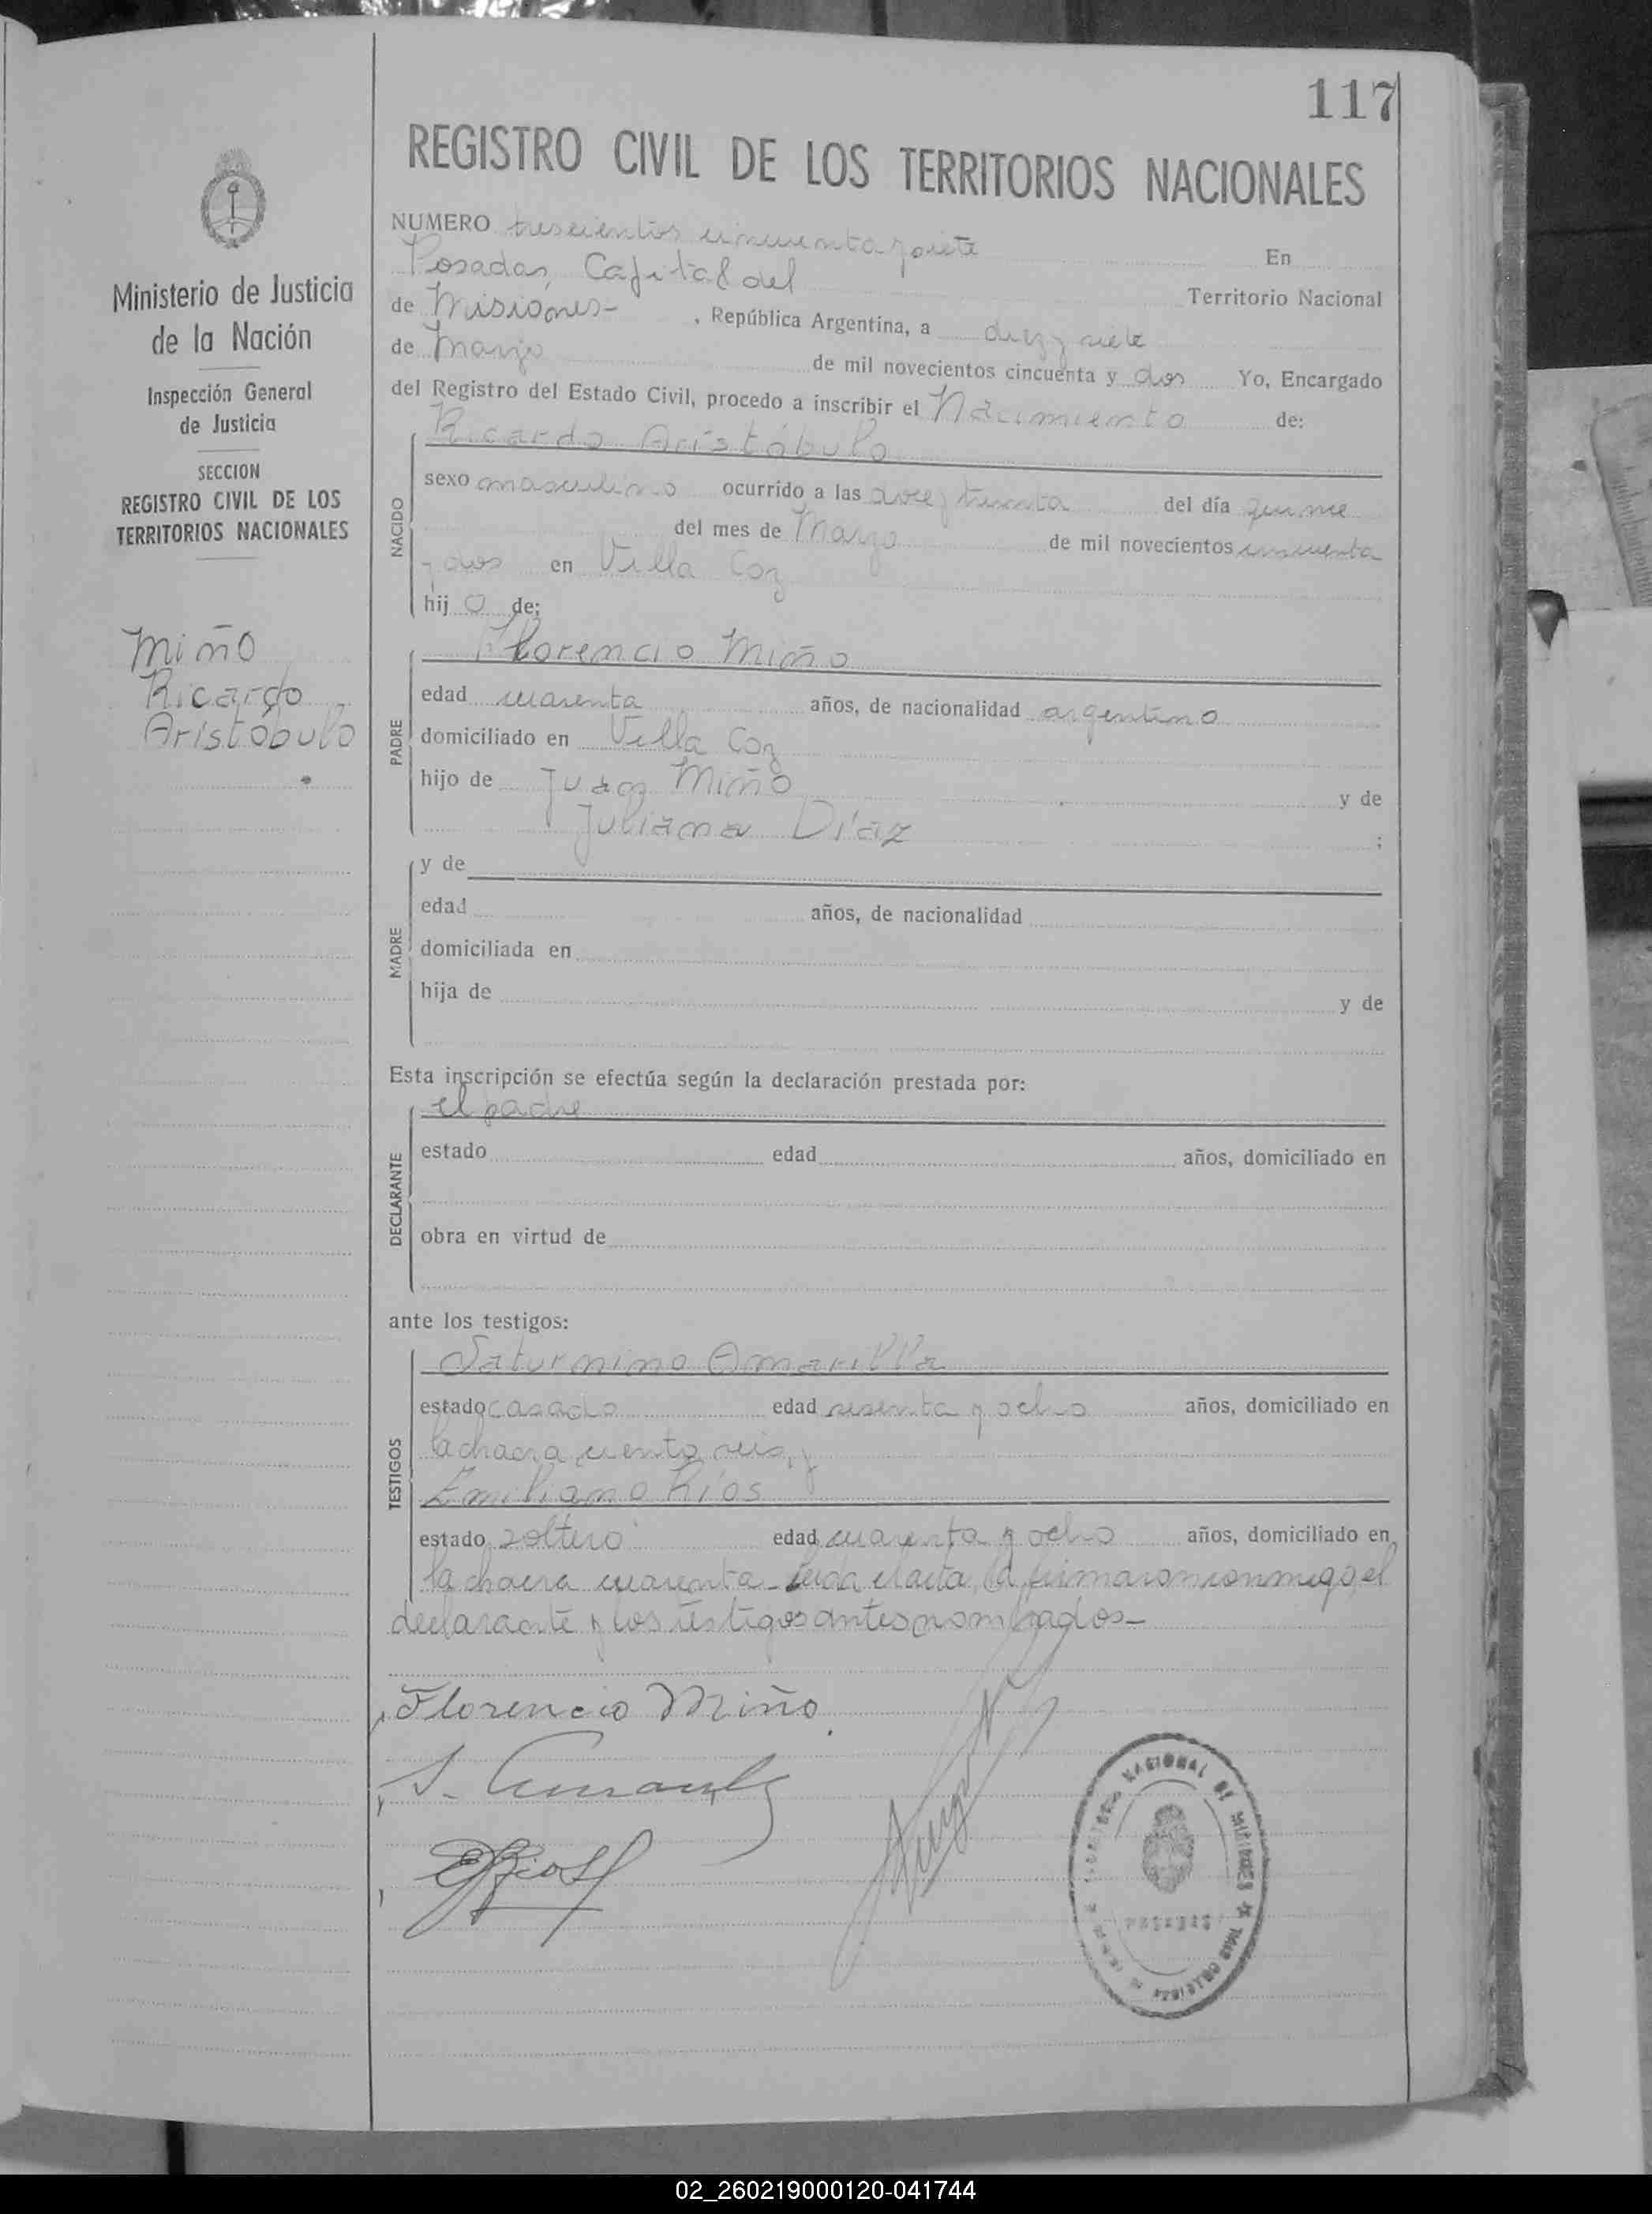 117
REGISTRO CIVIL DE LOS TERRITORIOS NACIONALES
Ministerio de Justicia
de la Nación
Inspección General
de Justicia
SECCION
REGISTRO CIVIL DE LOS
TERRITORIOS NACIONALES
Miño
Ricardo
Aristóbulo
NUMERO trescientos cincuenta y siete En
Posadas, Capital del Territorio Nacional
de Misiones- , República Argentina, a diez y siete
de Marzo de mil novecientos cincuenta y dos Yo, Encargado
del Registro del Estado Civil, procedo a inscribir el Nacimiento de:
NACIDO
Ricardo Aristóbulo
sexo masculino ocurrido a las doce y treinta del día quince
del mes de Marzo de mil novecientos cincuenta
y dos en Villa Coz
hij o de:
PADRE
Florencio Miño
edad cuarenta años, de nacionalidad argentino
domiciliado en Villa Coz
hijo de Juan Miño y de
Juliana Díaz ;
MADRE
y de
edad años, de nacionalidad
domiciliada en
hija de y de
Esta inscripción se efectúa según la declaración prestada por:
DECLARANTE
el padre
estado edad años, domiciliado en
obra en virtud de
ante los testigos:
TESTIGOS
Saturnino Amarilla
estado casado edad sesenta y ocho años, domiciliado en
la chacra ciento seis, y
Emiliano Ríos
estado soltero edad cuarenta y ocho años, domiciliado en
la chacra cuarenta - Leída el acta, la firmaron conmigo, el
declarante y los testigos antes nombrados-
Florencio Miño
S. Amarilla
E Rios
NACIONAL DE MISIONES
POSADAS
REGISTRO CIVIL
02_260219000120-041744